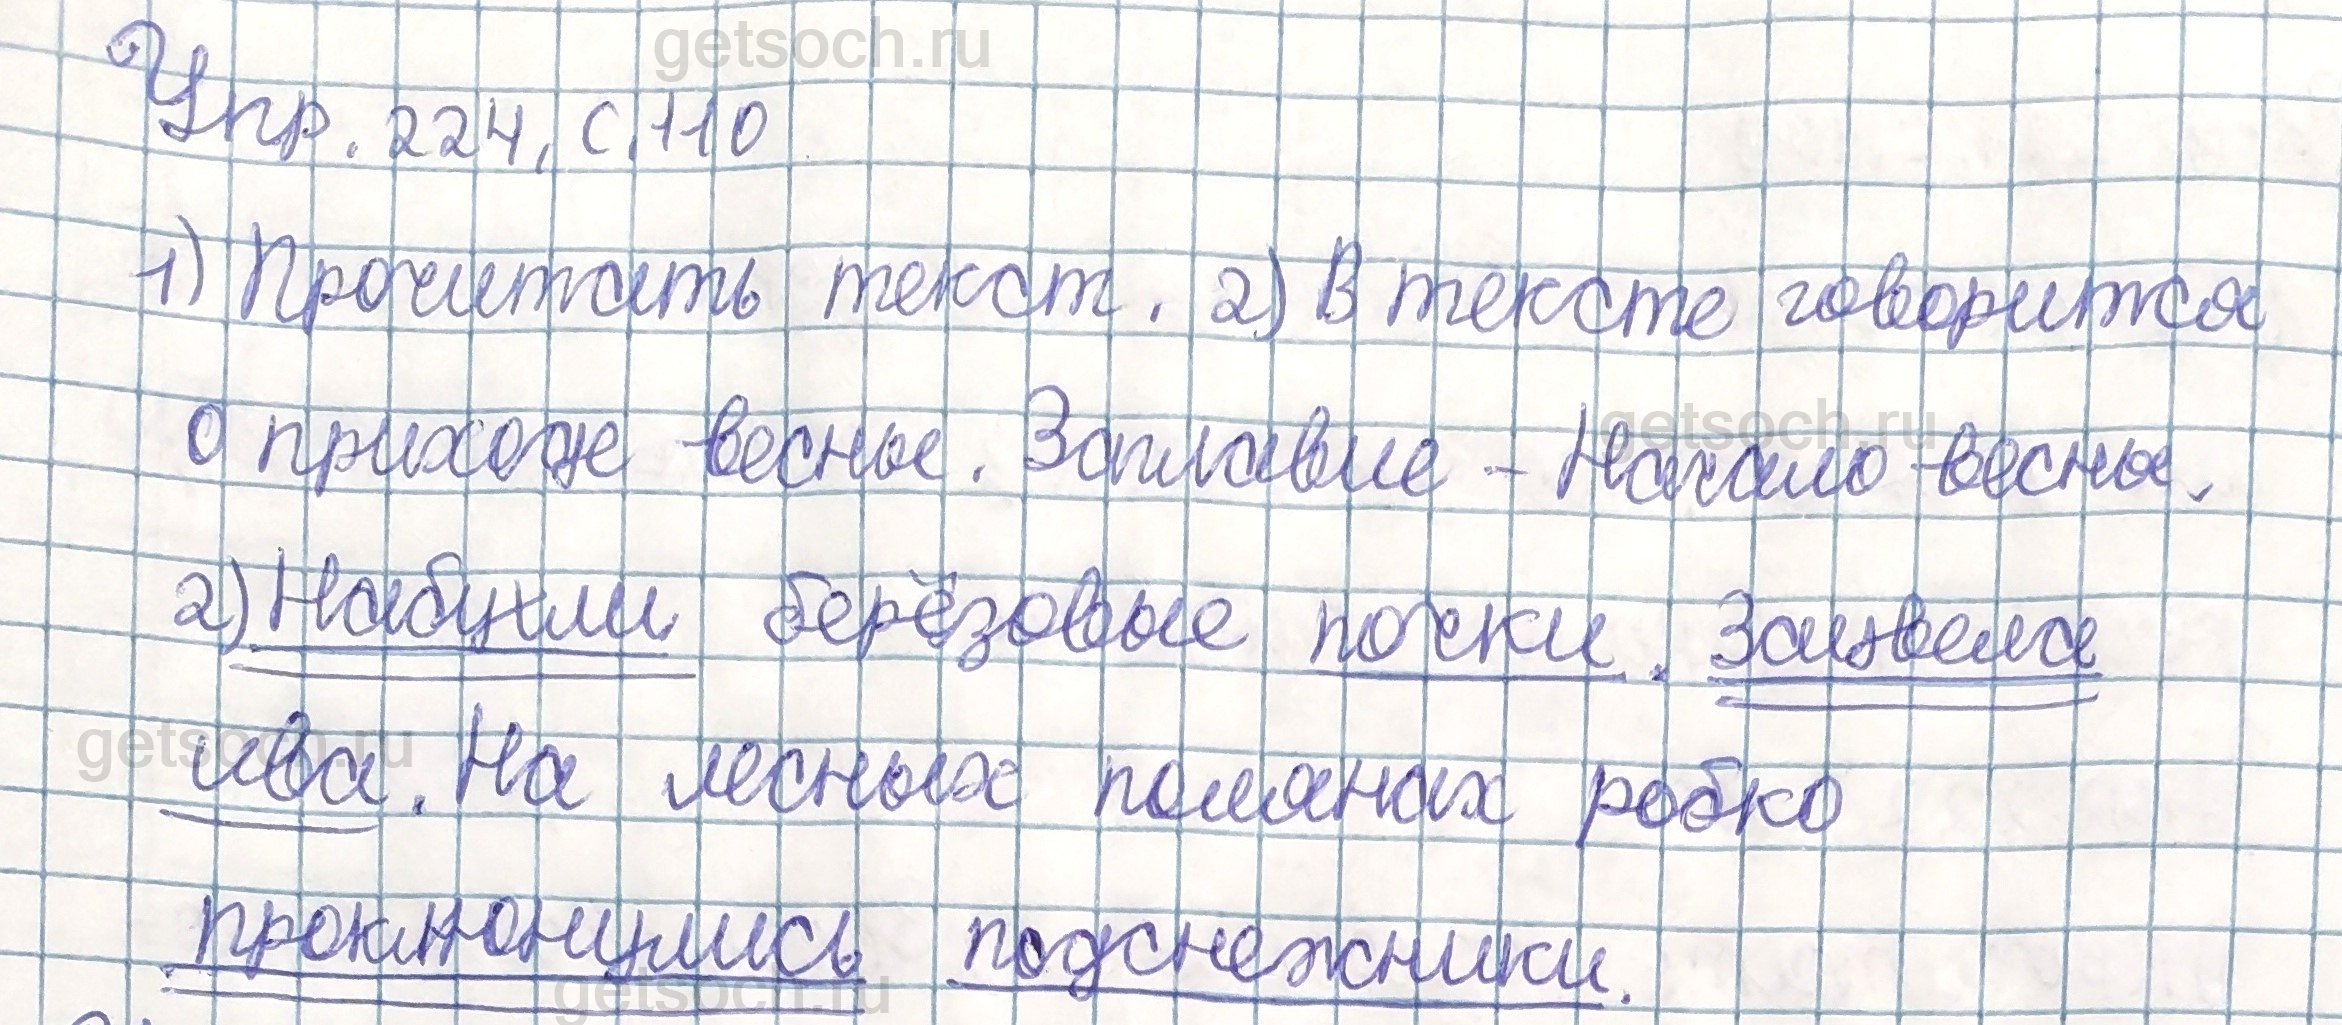 getsoch.ru
Упр. 224, с. 110
1) Прочитать текст. 2) В тексте говорится
о приходе весны. Заглавие - Начало весны.
getsoch.ru
2) Набухли берёзовые почки. Зацвела
ива. На лесных полянах робко
getsoch.ru
проклюнулись подснежники.
getsoch.ru